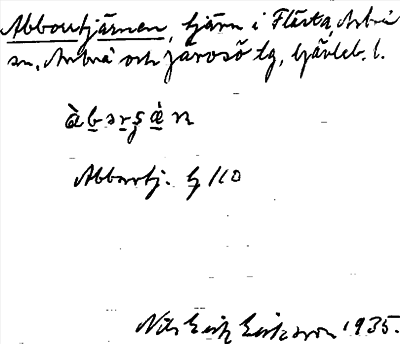 Abbortjärnen, tjärn i Flästa, Arbrå
sn, Arbrå och Järvsö tg, Gävleb. l.
àbərʂæ̀n
Abbortj. G 110
Nils Erik Eriksson 1935.